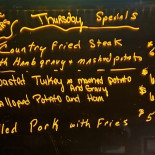 Thursday Specials
Country Fried Steak
with Hamb gravy + mashed potato
Roast Turkey w/ mashed potato
And Gravy
Scalloped Potato and Ham
Pulled Pork with Fries